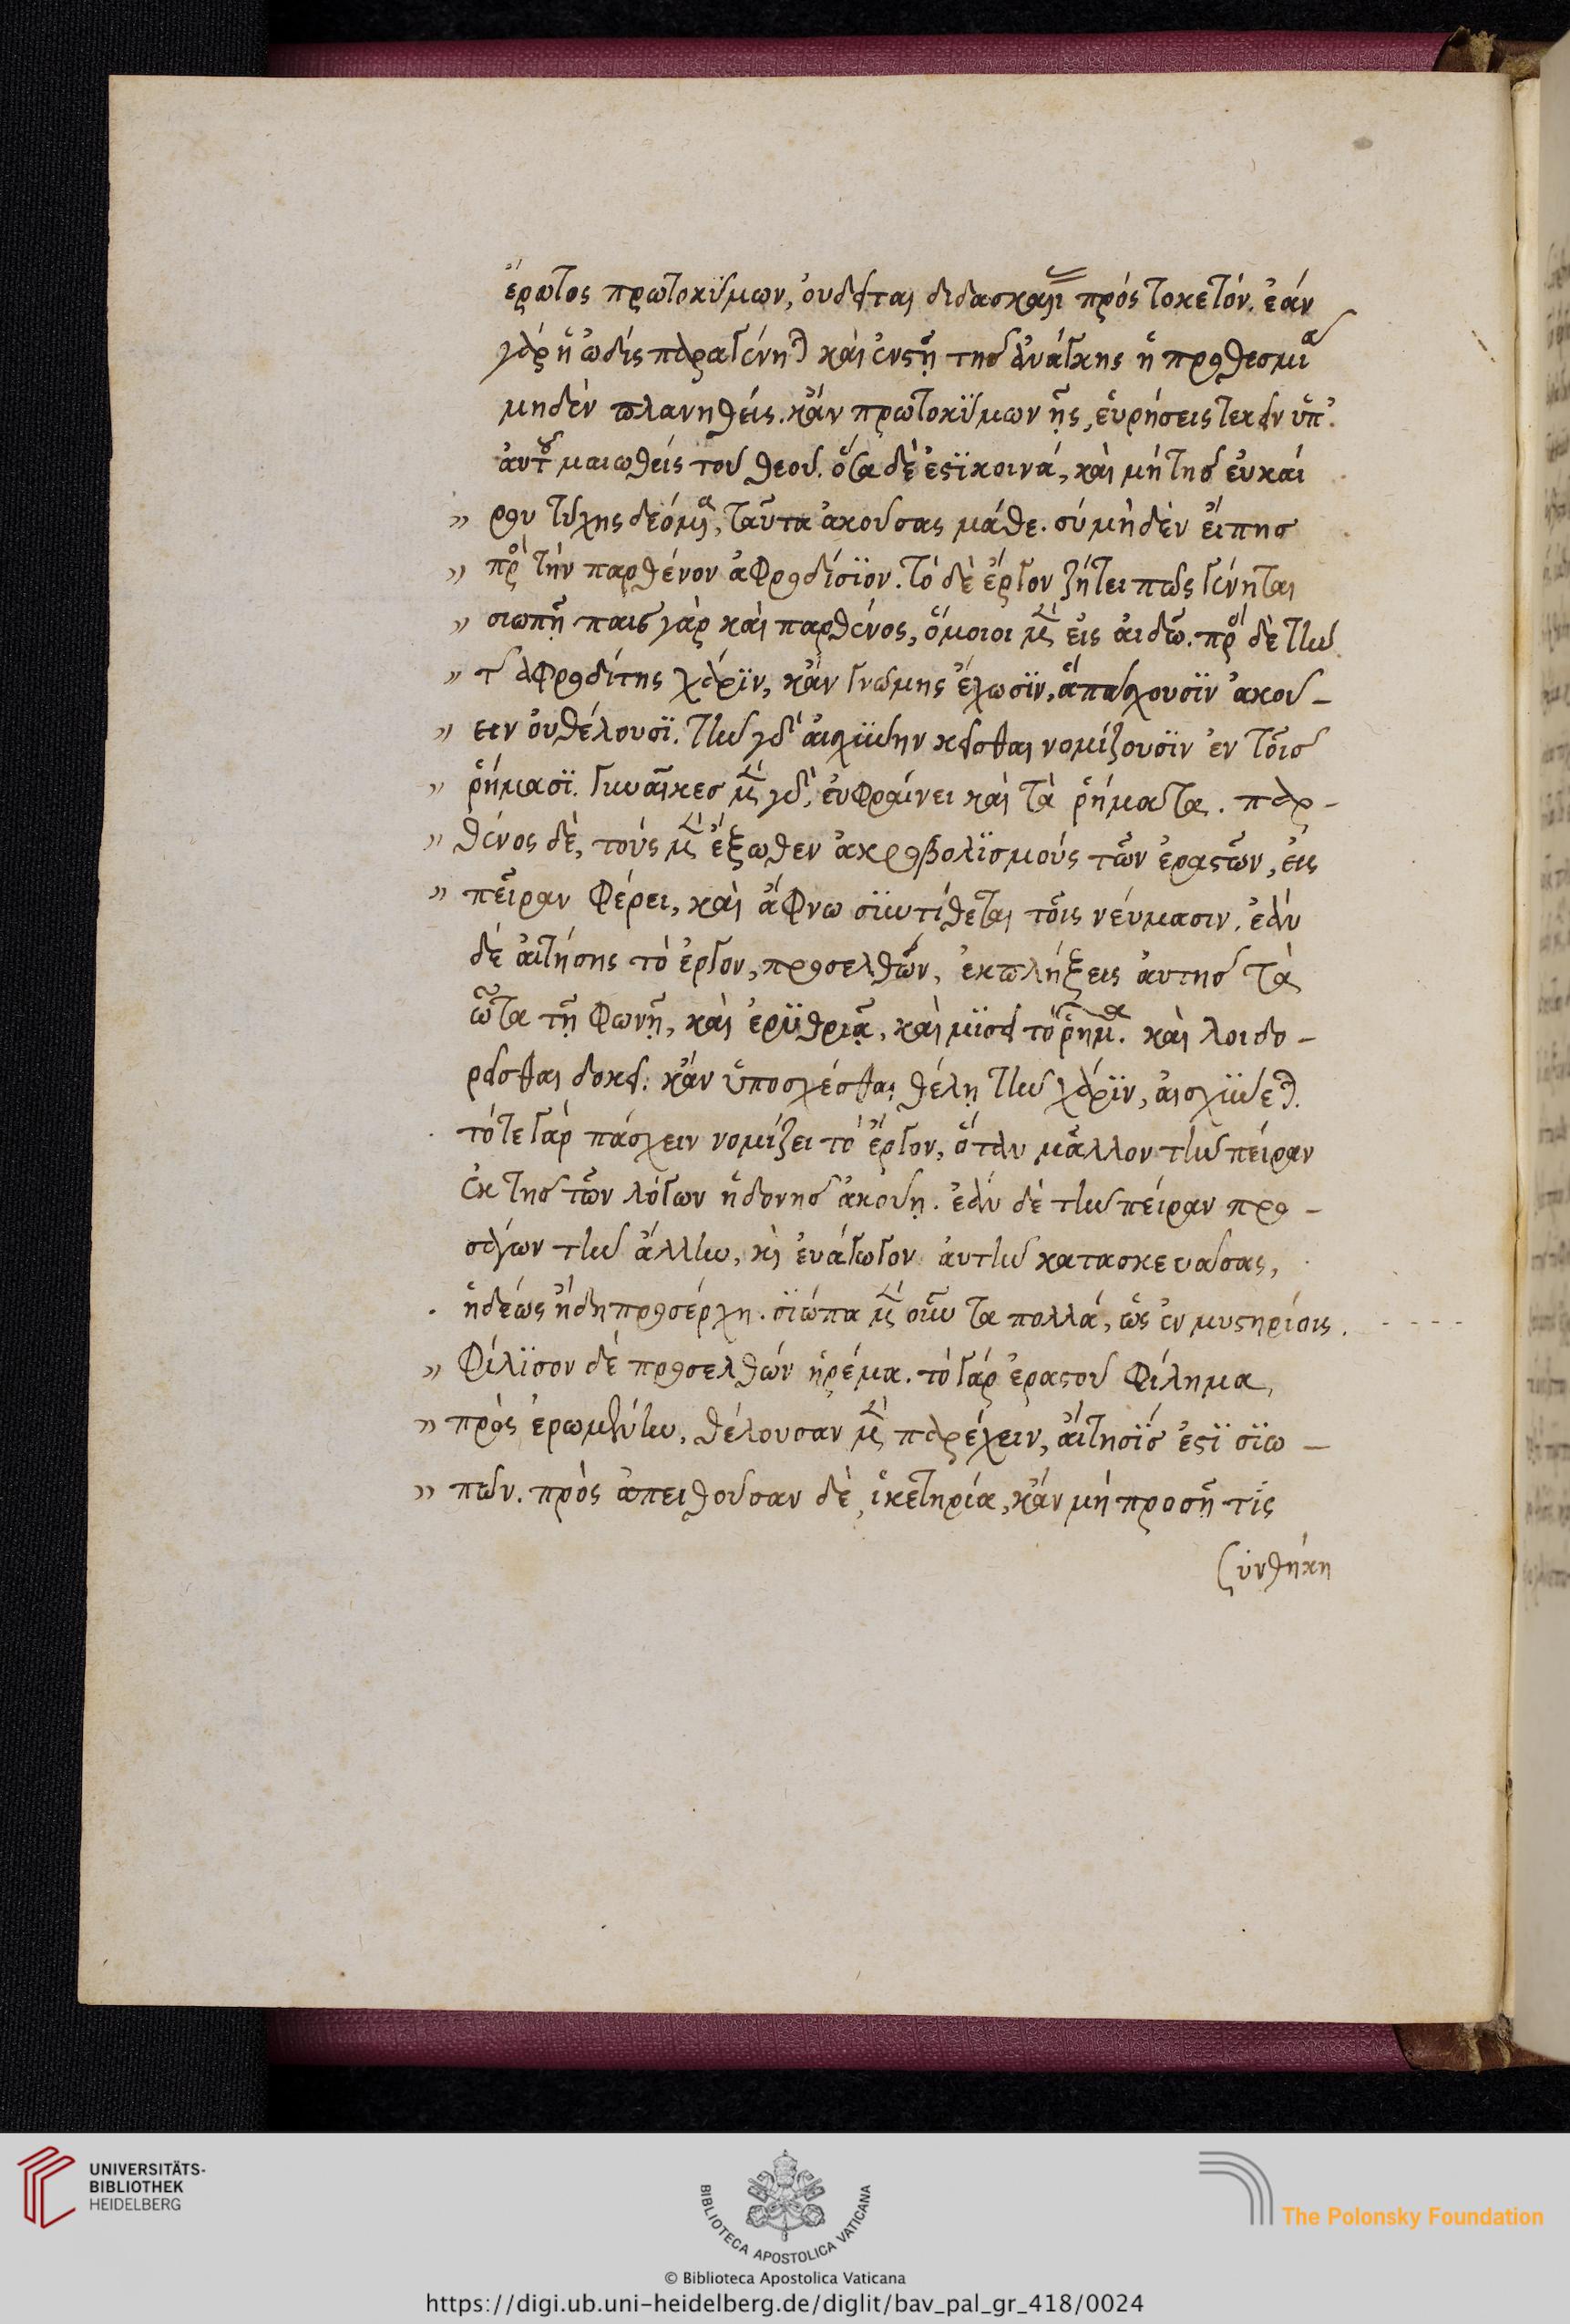 ἔρωτος πρωτοκύμων, οὐ δεῖται διδασκαλίας πρὸς τοκετόν. ἐὰν
γὰρ ἡ ὠδὶς παραγένηται καὶ ἐνστῇ τῆς ἀνάγκης ἡ προθεσμία
μηδὲν πλανηθείς. κἂν πρωτοκύμων ᾖς, εὑρήσεις τεκεῖν ὑπ'
αὐτοῦ μαιωθεὶς τοῦ θεοῦ. ὅσα δὲ ἐστὶ κοινά, καὶ μὴ τῆς εὐκαί
ρου τύχης δεόμενα, ταῦτα ἀκούσας μάθε. σὺ μηδὲν εἴπῃς
πρὸς τὴν παρθένον ἀφροδίσιον. τὸ δὲ ἔργον ζήτει πῶς γένηται
σιωπῇ παῖς γὰρ καὶ παρθένος, ὅμοιοι μὲν εἰς αἰδῶ. πρὸς δὲ τὴν
τῆς ἀφροδίτης χάριν, κἂν γνώμης ἔχωσιν, ἃ πάσχουσιν ἀκού-
ειν οὐ θέλουσι. τὴν γὰρ αἰσχύνην κεῖσθαι νομίζουσιν ἐν τοῖς
ῥήμασι. γυναῖκες μὲν γὰρ, εὐφραίνει καὶ τὰ ῥήματα. παρ-
θένος δὲ, τοὺς μὲν ἔξωθεν ἀκροβολισμοὺς τῶν ἐραστῶν, εἰς
πεῖραν φέρει, καὶ ἄφνω συντίθεται τοῖς νεύμασιν. ἐὰν
δὲ αἰτήσης τὸ ἔργον, προσελθὼν, ἐκπλήξεις αὐτῆς τὰ
ὦτα τῇ φωνῇ, καὶ ἐρυθριᾷ, καὶ μισεῖ τὸ ῥῆμα. καὶ λοιδο-
ρεῖσθαι δοκεῖ. κἂν ὑποσχέσθαι θέλῃ τὴν χάριν, αἰσχύνεται.
τότε γὰρ πάσχειν νομίζει τὸ ἔργον, ὅταν μᾶλλον τὴν πεῖραν
ἐκ τῆς τῶν λόγων ἡδονῆς ἀκούῃ. ἐὰν δὲ τὴν πεῖραν προ-
σάγων τὴν ἄλλην, καὶ εὐάγωγον αὐτὴν κατασκευάσας,
ἡδέως ἤδη προσέρχῃ. σιώπα μὲν οὖν τὰ πολλά, ὡς ἐν μυστηρίοις.
φίλησον δὲ προσελθὼν ἠρέμα. τὸ γὰρ ἐραστοῦ φίλημα,
πρὸς ἐρωμένην, θέλουσαν μὲν παρέχειν, αἴτησίς ἐστι σιω-
πῶν. πρὸς ἀπειθοῦσαν δὲ, ἱκετηρία, κἂν μὴ προσῇ τίς
συνθήκη
UNIVERSITÄTS-
BIBLIOTHEK
HEIDELBERG
BIBLIOTECA APOSTOLICA VATICANA
The Polonsky Foundation
© Biblioteca Apostolica Vaticana
https://digi.ub.uni-heidelberg.de/diglit/bav_pal_gr_418/0024